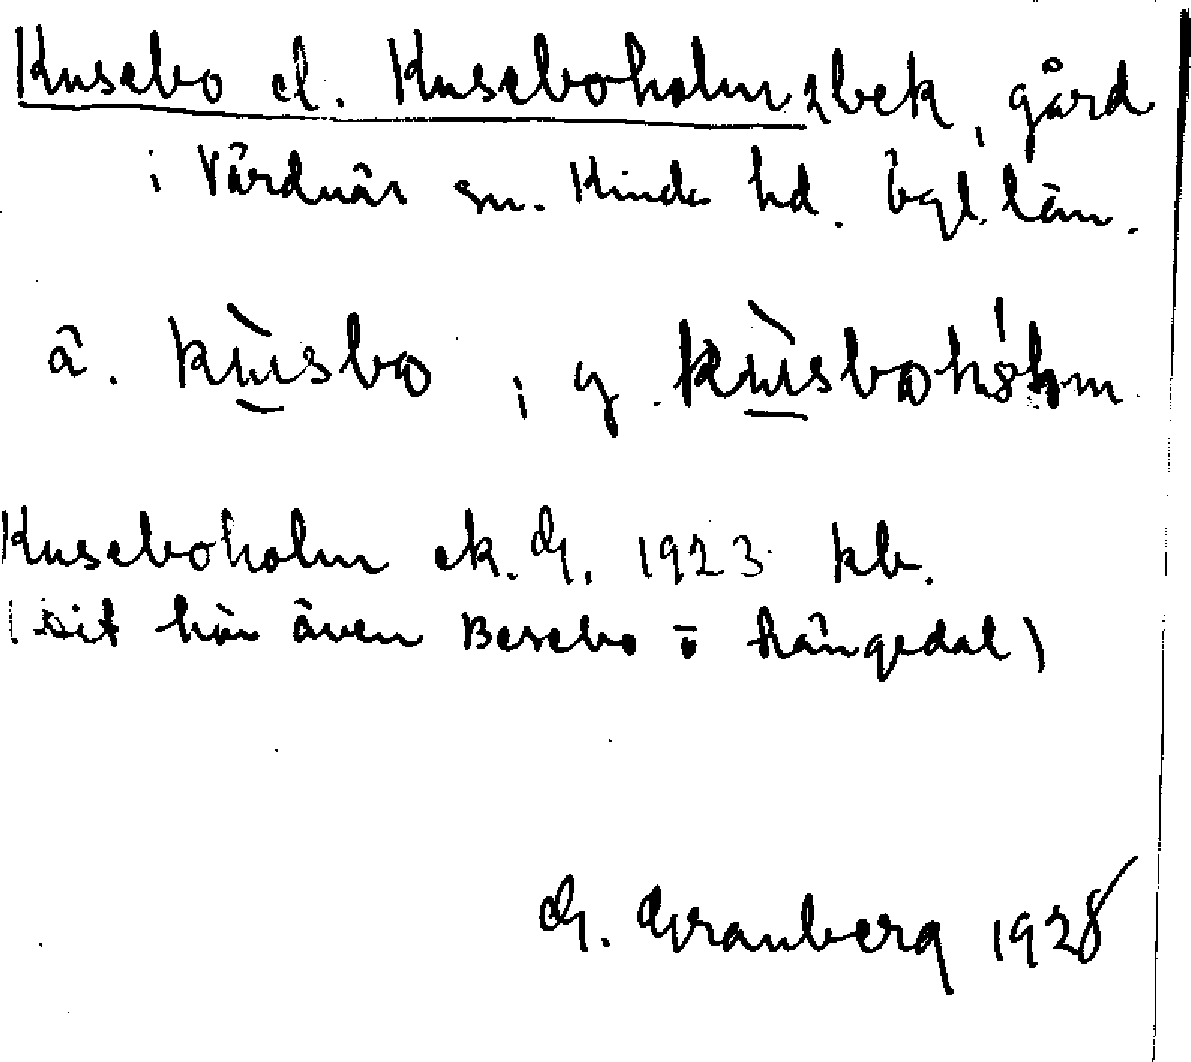 Kusebo el. Kuseboholm, 2 bek, gård
i Vårdnäs sn. Kinda hd. Ögl. län.
ä. kùsbo, y. kùsbohólm
Kuseboholm ek. G. 1923 kb.
(dit hör även Bersebo o Rängedal)
G. Granberg 1928